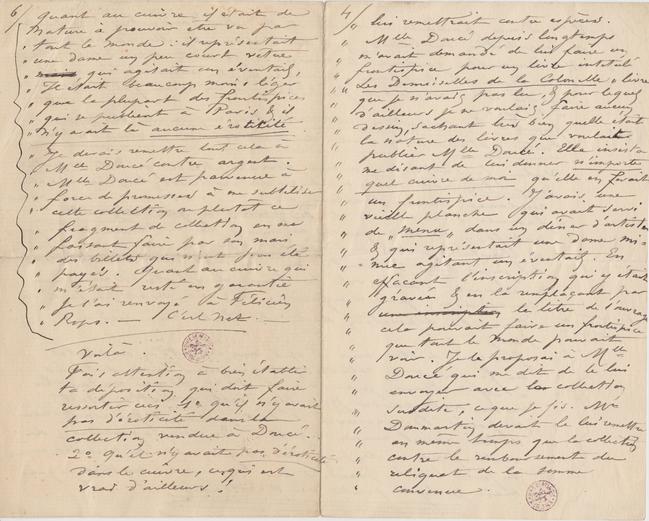 6/
quant au cuivre il était de
nature à pouvoir être vu par
tout le monde : il représentait
une dame un peu court vêtue
qui agitait un éventail,
Il était beaucoup moins léger
que la plupart des frontispices
qui se publient à Paris, & il
n'y avait là aucune érotitité.
" Je devais remettre tout cela à
" Mlle Doucé contre argent.
" Mlle Doucé est parvenue à
" force de promesses à me subtiliser
" cette collection ou plutôt ce
" fragment de collection en me
" faisant faire par son mari
" des billets qui n'ont point été
" payés. Quant au cuivre qui
" m'était resté en garantie
" je l'ai renvoyé à Félicien
" Rops. — C'est net.
Voilà.
Fais attention à bien établir
ta déposition qui doit faire
ressortir ceci 1o qu'il n'y avait
pas d'éroticité dans la
collection vendue à Doucé.
2o qu'il n'y avait pas d'éroticité
dans le cuivre, ce qui est
vrai d'ailleurs !
4/
" lui remettrait contre espèces.
" Mlle Doucé depuis longtemps
" m'avait demandé de lui faire un
" frontispice pour un livre intitulé
" Les Demoiselles de la Colonelle, livre
" que je n'avais pas lu, & pour lequel
" d'ailleurs je ne voulais faire aucun
" dessin, sachant très bien quelle était
" la nature des livres que voulait
" publier Mlle Doucé. Elle insista
" me disant de lui donner n'importe
" quel cuivre de moi qu'elle en ferait
" un frontispice. J'avais une
" vieille planche qui avait servi
" de "menu" dans un dîner d'artistes
" & qui représentait une Dame
agitant un éventail. En
" effaçant l'inscription qui y était
" gravée & en la remplaçant par
" le titre de l'ouvrage
" cela pouvait faire un frontispice
" que tout le monde pouvait
" voir. Je le proposai à Mlle
" Doucé qui me dit de le lui
" envoyer avec la collection
" susdite, ce que je fis. Mr
" Dommartin devait le lui remettre
" en même temps que la collection
" contre le remboursement du
" reliquat de la somme
" convenue.